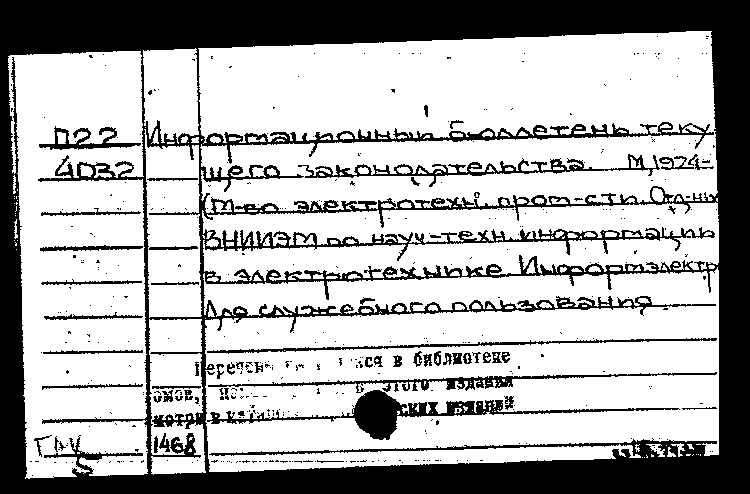 П22 Информационный бюллетень теку
4032 щего законодательства. М, 1974-
(М-во электротехн. пром-сти. Отд-ние
ВНИИЭМ по науч-техн. информации
в электротехнике Информэлектр
Для служебного пользования.
Перечень ся в библиотеке
томов, этого издания
смотри в ских изданий
1468
5